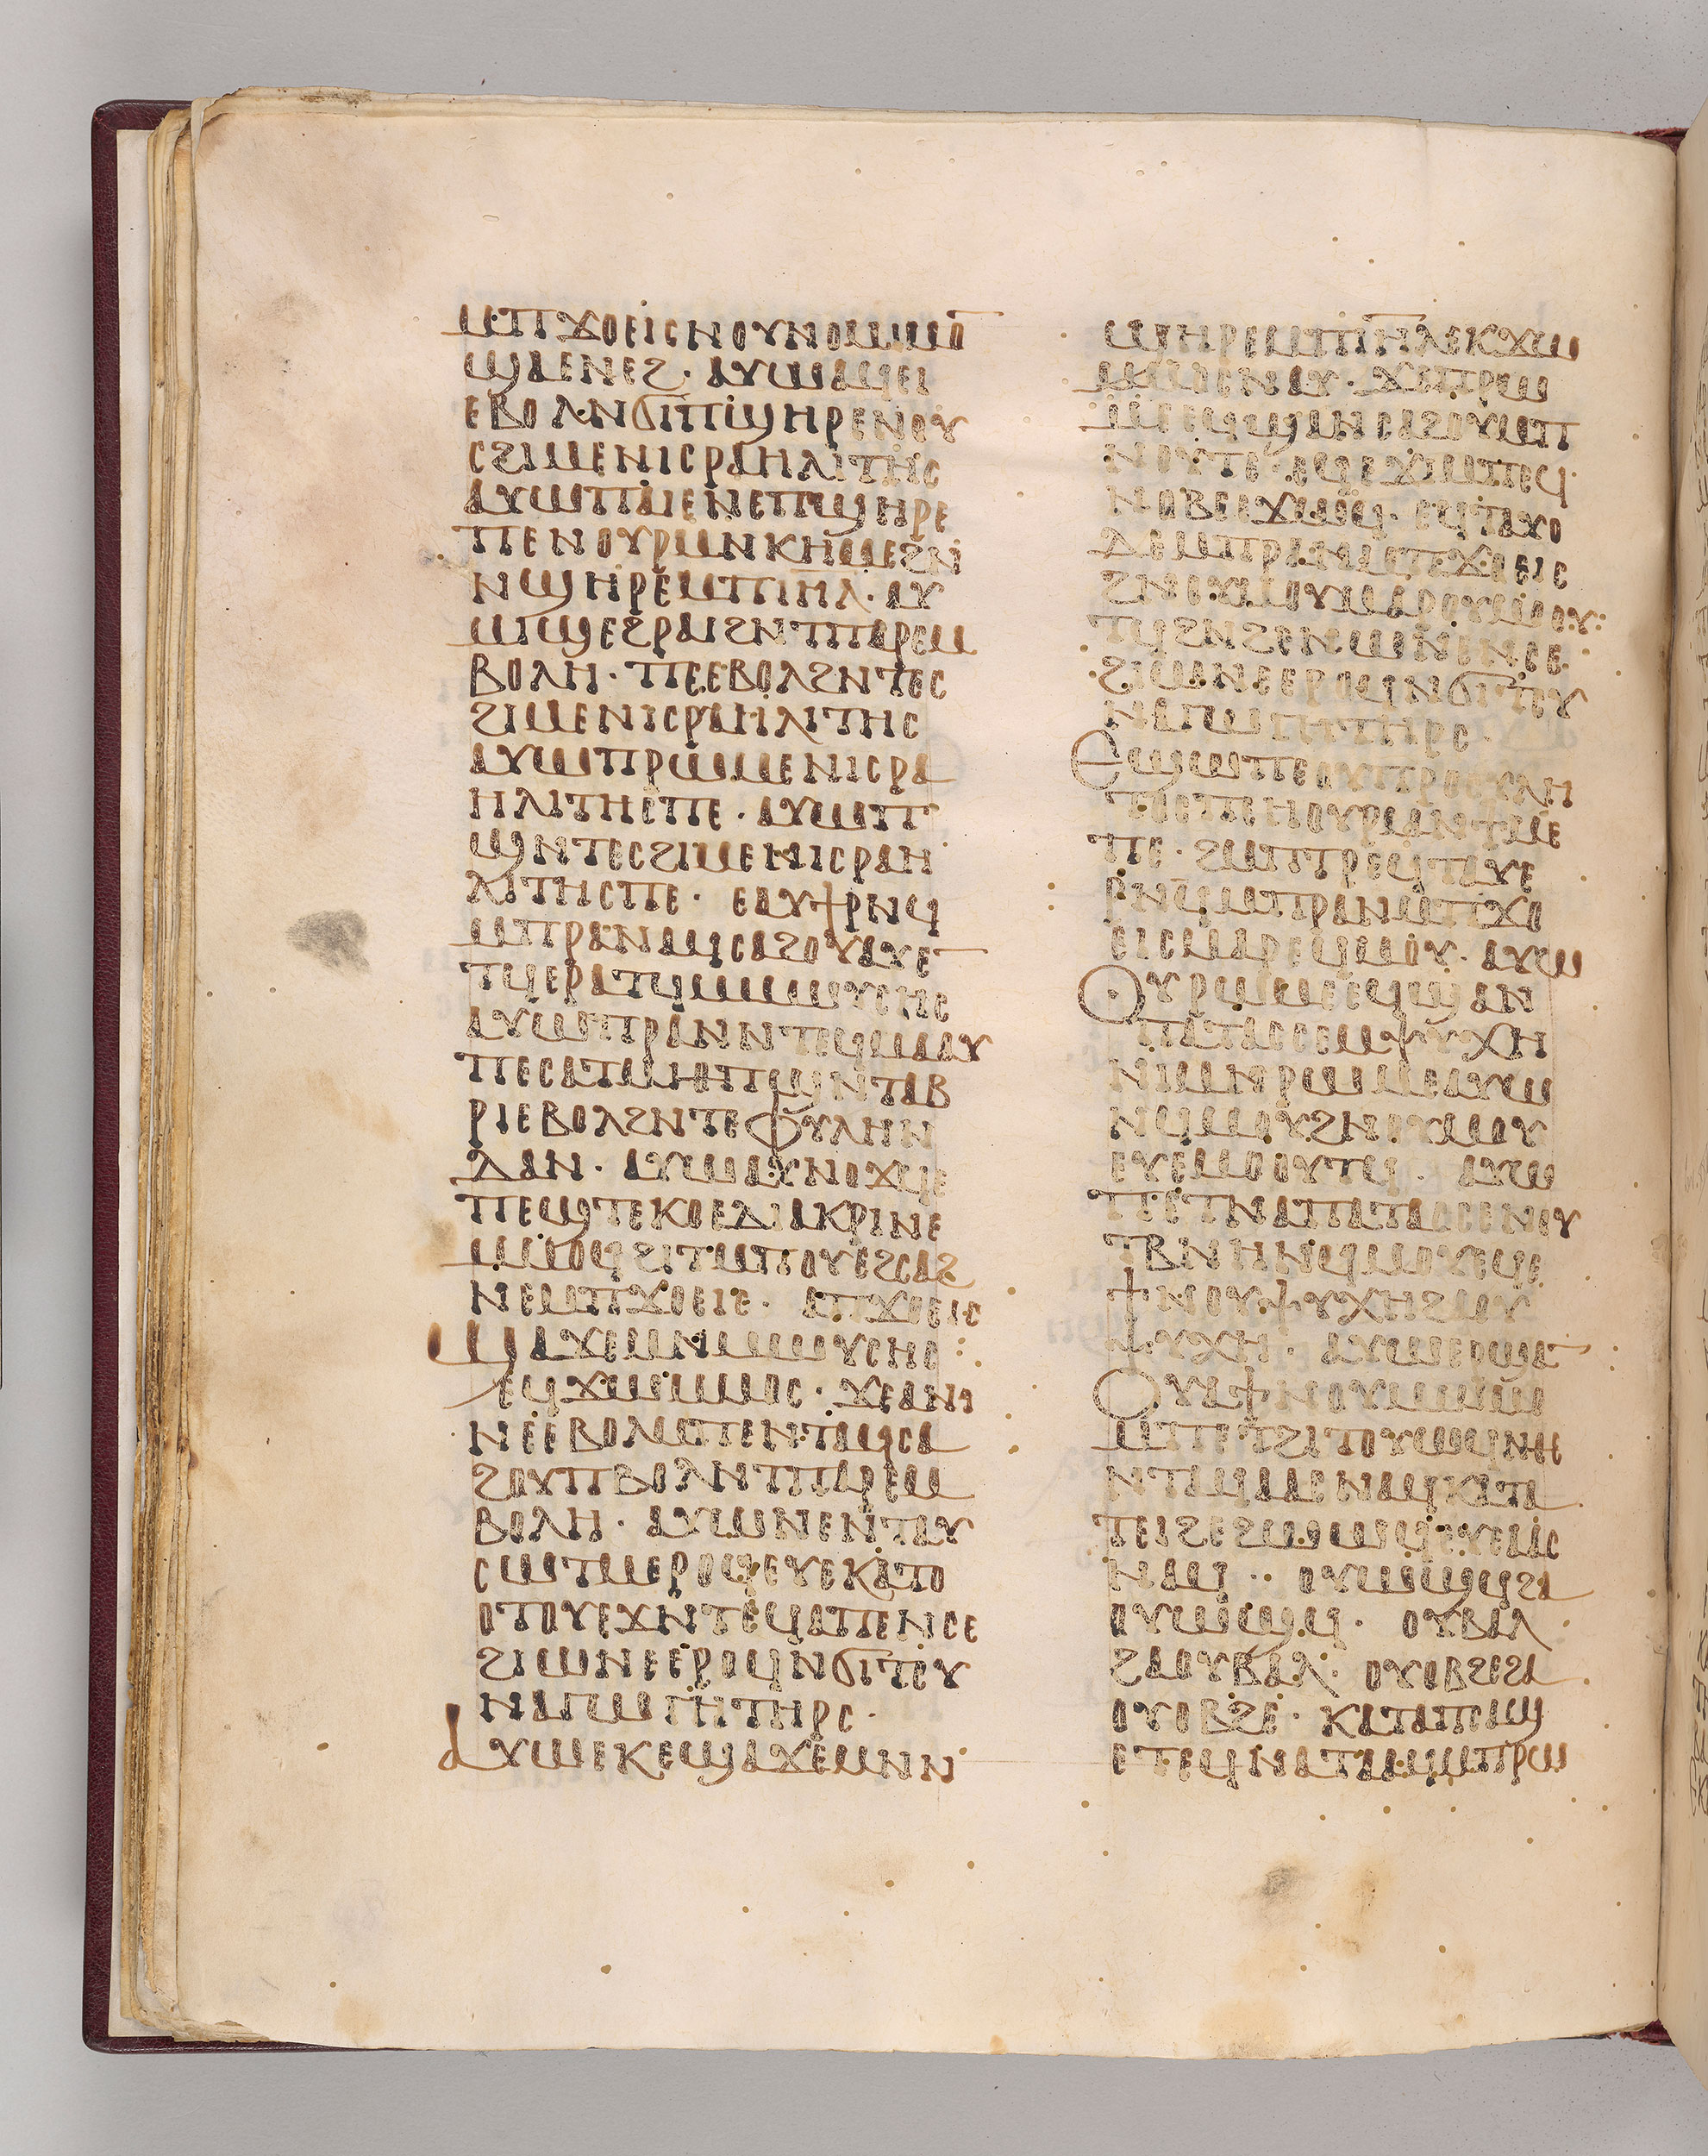 ⲙⲡϫⲟⲉⲓⲥⲛⲟⲩⲛⲟⲙⲙⲟ
ϣⲁⲉⲛⲉϩ· ⲁⲩⲱⲁϥⲉⲓ
ⲉⲃⲟⲗ·ⲛϭⲓⲡϣⲏⲣⲉⲛⲟⲩ
ⲥϩⲓⲙⲉⲛⲓⲥⲣⲁⲏⲗⲓⲧⲏⲥ
ⲁⲩⲱⲡⲁⲓⲉⲛⲉⲡϣⲏⲣⲉ
ⲡⲉⲛⲟⲩⲣⲙⲛⲕⲏⲙⲉϩⲛ
ⲛϣⲏⲣⲉⲙⲡⲓⲏⲗ· ⲁⲩ
ⲙⲓϣⲉϩⲣⲁⲓϩⲛⲧⲡⲁⲣⲉⲙ
ⲃⲟⲗⲏ· ⲡⲉⲉⲃⲟⲗϩⲛⲧⲉⲥ
ϩⲓⲙⲉⲛⲓⲥⲣⲁⲏⲗⲓⲧⲏⲥ
ⲁⲩⲱⲡⲣⲱⲙⲉⲛⲓⲥⲣⲁ
ⲏⲗⲓⲧⲏⲥⲡⲉ· ⲁⲩⲱⲡ
ϣⲛⲧⲉⲥϩⲓⲙⲉⲛⲓⲥⲣⲁⲏ
ⲗⲓⲧⲏⲥⲡⲉ· ⲉⲁⲩϯⲣⲛϥ
ⲙⲡⲣⲁⲛⲁϥⲥⲁϩⲟⲩⲁⲩⲉ
ⲧϥⲉⲣⲁⲧϥⲙⲙⲱⲩⲥⲏⲥ
ⲁⲩⲱⲡⲣⲁⲛⲛⲧⲉϥⲙⲁⲁⲩ
ⲡⲉⲥⲁⲧⲙⲏⲑⲧϣⲛⲧⲁⲃ
ⲣⲓⲉⲃⲟⲗϩⲛⲧⲉⲫⲩⲗⲏⲛ
ⲇⲁⲛ· ⲁⲩⲱⲁⲩⲛⲟϫϥⲉ
ⲡⲉϣⲧⲉⲕⲟⲉⲇⲓⲁⲕⲣⲓⲛⲉ
ⲙⲙⲟϥϩⲓⲧⲙⲡⲟⲩⲉϩⲥⲁϩ
ⲛⲉⲙⲡϫⲟⲉⲓⲥ· ⲁⲡϫⲟⲉⲓⲥ
ϣⲁϫⲉⲙⲛⲙⲱⲩⲥⲏⲥ:
ⲉϥϫⲱⲙⲙⲟⲥ· ϫⲉⲁⲛⲓ
ⲛⲉⲉⲃⲟⲗⲙⲡⲉⲛⲧⲁϥⲥⲁ
ϩⲟⲩⲡⲃⲟⲗⲛⲧⲡⲁⲣⲉⲙ
ⲃⲟⲗⲏ· ⲁⲩⲱⲛⲉⲛⲧⲁⲩ
ⲥⲱⲧⲙⲉⲣⲟϥⲉⲩⲉⲕⲁⲧⲟ
ⲟⲧⲟⲩⲉϫⲛⲧⲉϥⲁⲡⲉⲛⲥⲉ
ϩⲓⲱⲛⲉⲉⲣⲟϥⲛϭⲓⲧⲥⲩ
ⲛⲁⲅⲱⲅⲏⲧⲏⲣⲥ·
ⲁⲩⲱⲉⲕⲉϣⲁϫⲉⲙⲛⲛ
ϣⲏⲣⲉⲙⲡⲓⲏⲗⲉⲕϫⲱ
ⲙⲙⲟⲥⲛⲁⲩ· ϫⲉⲡⲣⲱ
ⲙⲉⲉϥϣⲁⲛⲥⲁϩⲟⲩⲙⲡ
ⲛⲟⲩⲧⲉ· ⲉϥⲉϫⲓⲙⲡⲉϥ
ⲛⲟⲃⲉⲉϫⲱϥ· ⲉϥⲧⲁⲩⲟ
ⲇⲉⲙⲡⲣⲁⲛⲙⲡϫⲟⲉⲓⲥ
ϩⲛⲟⲩⲙⲟⲩⲙⲁⲣⲟⲩⲙⲟⲟⲩ:
ⲧϥϩⲛϩⲉⲛⲱⲛⲉⲛⲥⲉ
ϩⲓⲱⲛⲉⲉⲣⲟϥⲛϭⲓⲧⲥⲩ
ⲛⲁⲅⲱⲅⲏⲧⲏⲣⲥ·
ⲉϣⲱⲡⲉⲟⲩⲡⲣⲟⲥⲩⲗⲏ
ⲧⲟⲥⲡⲉⲏⲟⲩⲣⲙⲛϯⲙⲉ
ⲡⲉ· ϩⲙⲡⲧⲣⲉϥⲧⲁⲩⲉ
ⲣⲛϥⲙⲡⲣⲁⲛⲙⲡϫⲟ
ⲉⲓⲥⲙⲁⲣⲉϥⲙⲟⲩ· ⲁⲩⲱ
ⲟⲩⲣⲱⲙⲉⲉϥϣⲁⲛ
ⲡⲁⲧⲁⲥⲥⲉⲙⲯⲩⲭⲏ
ⲛⲓⲙⲛⲣⲱⲙⲉⲁⲩⲱ
ⲛϥⲙⲟⲩϩⲛⲟⲩⲙⲟⲩ
ⲉⲩⲉⲙⲟⲟⲩⲧϥ· ⲁⲩⲱ
ⲡⲉⲧⲛⲁⲡⲁⲧⲁⲥⲥⲉⲛⲟⲩ
ⲧⲃⲛⲏⲛϥⲙⲟⲩⲉϥⲉ
ϯⲛⲟⲩⲯⲩⲭⲏϩⲁⲟⲩ
ⲯⲩⲭⲏ· ⲁⲩⲱⲉⲣϣⲁ
ⲟⲩⲁϯⲛⲟⲩⲱⲙⲱ
ⲙⲡⲉⲧϩⲓⲧⲟⲩⲱϥⲛⲑⲉ
ⲛⲧⲁϥⲁⲁⲥⲛⲁϥⲕⲁⲧⲁ
ⲧⲉⲓϩⲉϩⲱⲱϥⲉⲩⲉⲁⲁⲥ
ⲛⲁϥ·· ⲟⲩⲱϣϥϩⲁ
ⲟⲩⲱϣϥ· ⲟⲩⲃⲁⲗ
ϩⲁⲟⲩⲃⲁⲗ· ⲟⲩⲟⲃϩⲉϩⲁ
ⲟⲩⲟⲃϩⲉ· ⲕⲁⲧⲁⲡⲥⲁϣ
ⲉⲧⲉϥⲛⲁⲧⲁⲁϥⲙⲡⲣⲱ